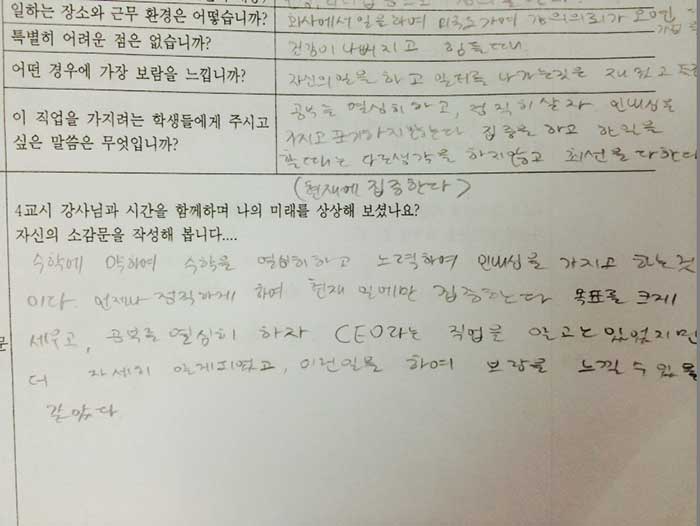 일하는 장소와 근무 환경은 어떻습니까?
회사에서 일을 하며 미국을 가며 강의의뢰가 오면
특별히 어려운 점은 없습니까?
건강이 나빠지고 힘들다.
어떤 경우에 가장 보람을 느낍니까?
자신의 일을 하고 일터를 나가는것을
이 직업을 가지려는 학생들에게 주시고
싶은 말씀은 무엇입니까?
공부를 열심히 하고, 정직히 살자 인내심을
가지고 포기하지않는다 집중을 하고 한일을
할때는 다른생각을 하지않고 최선을 다한다
(현재에 집중한다)
4교시 강사님과 시간을 함께하며 나의 미래를 상상해 보셨나요?
자신의 소감문을 작성해 봅니다....
수학에 약하여 수학을 열심히하고 노력하여 인내심을 가지고 하는것
이다. 언제나 정직하게 하며 현재 일에만 집중한다 목표를 크게
문
세우고, 공부를 열심히 하자 CEO라는 직업을 알고는 있었지만
더 자세히 알게되었고, 이런일을 하며 보람을 느낄 수 있을
같았다